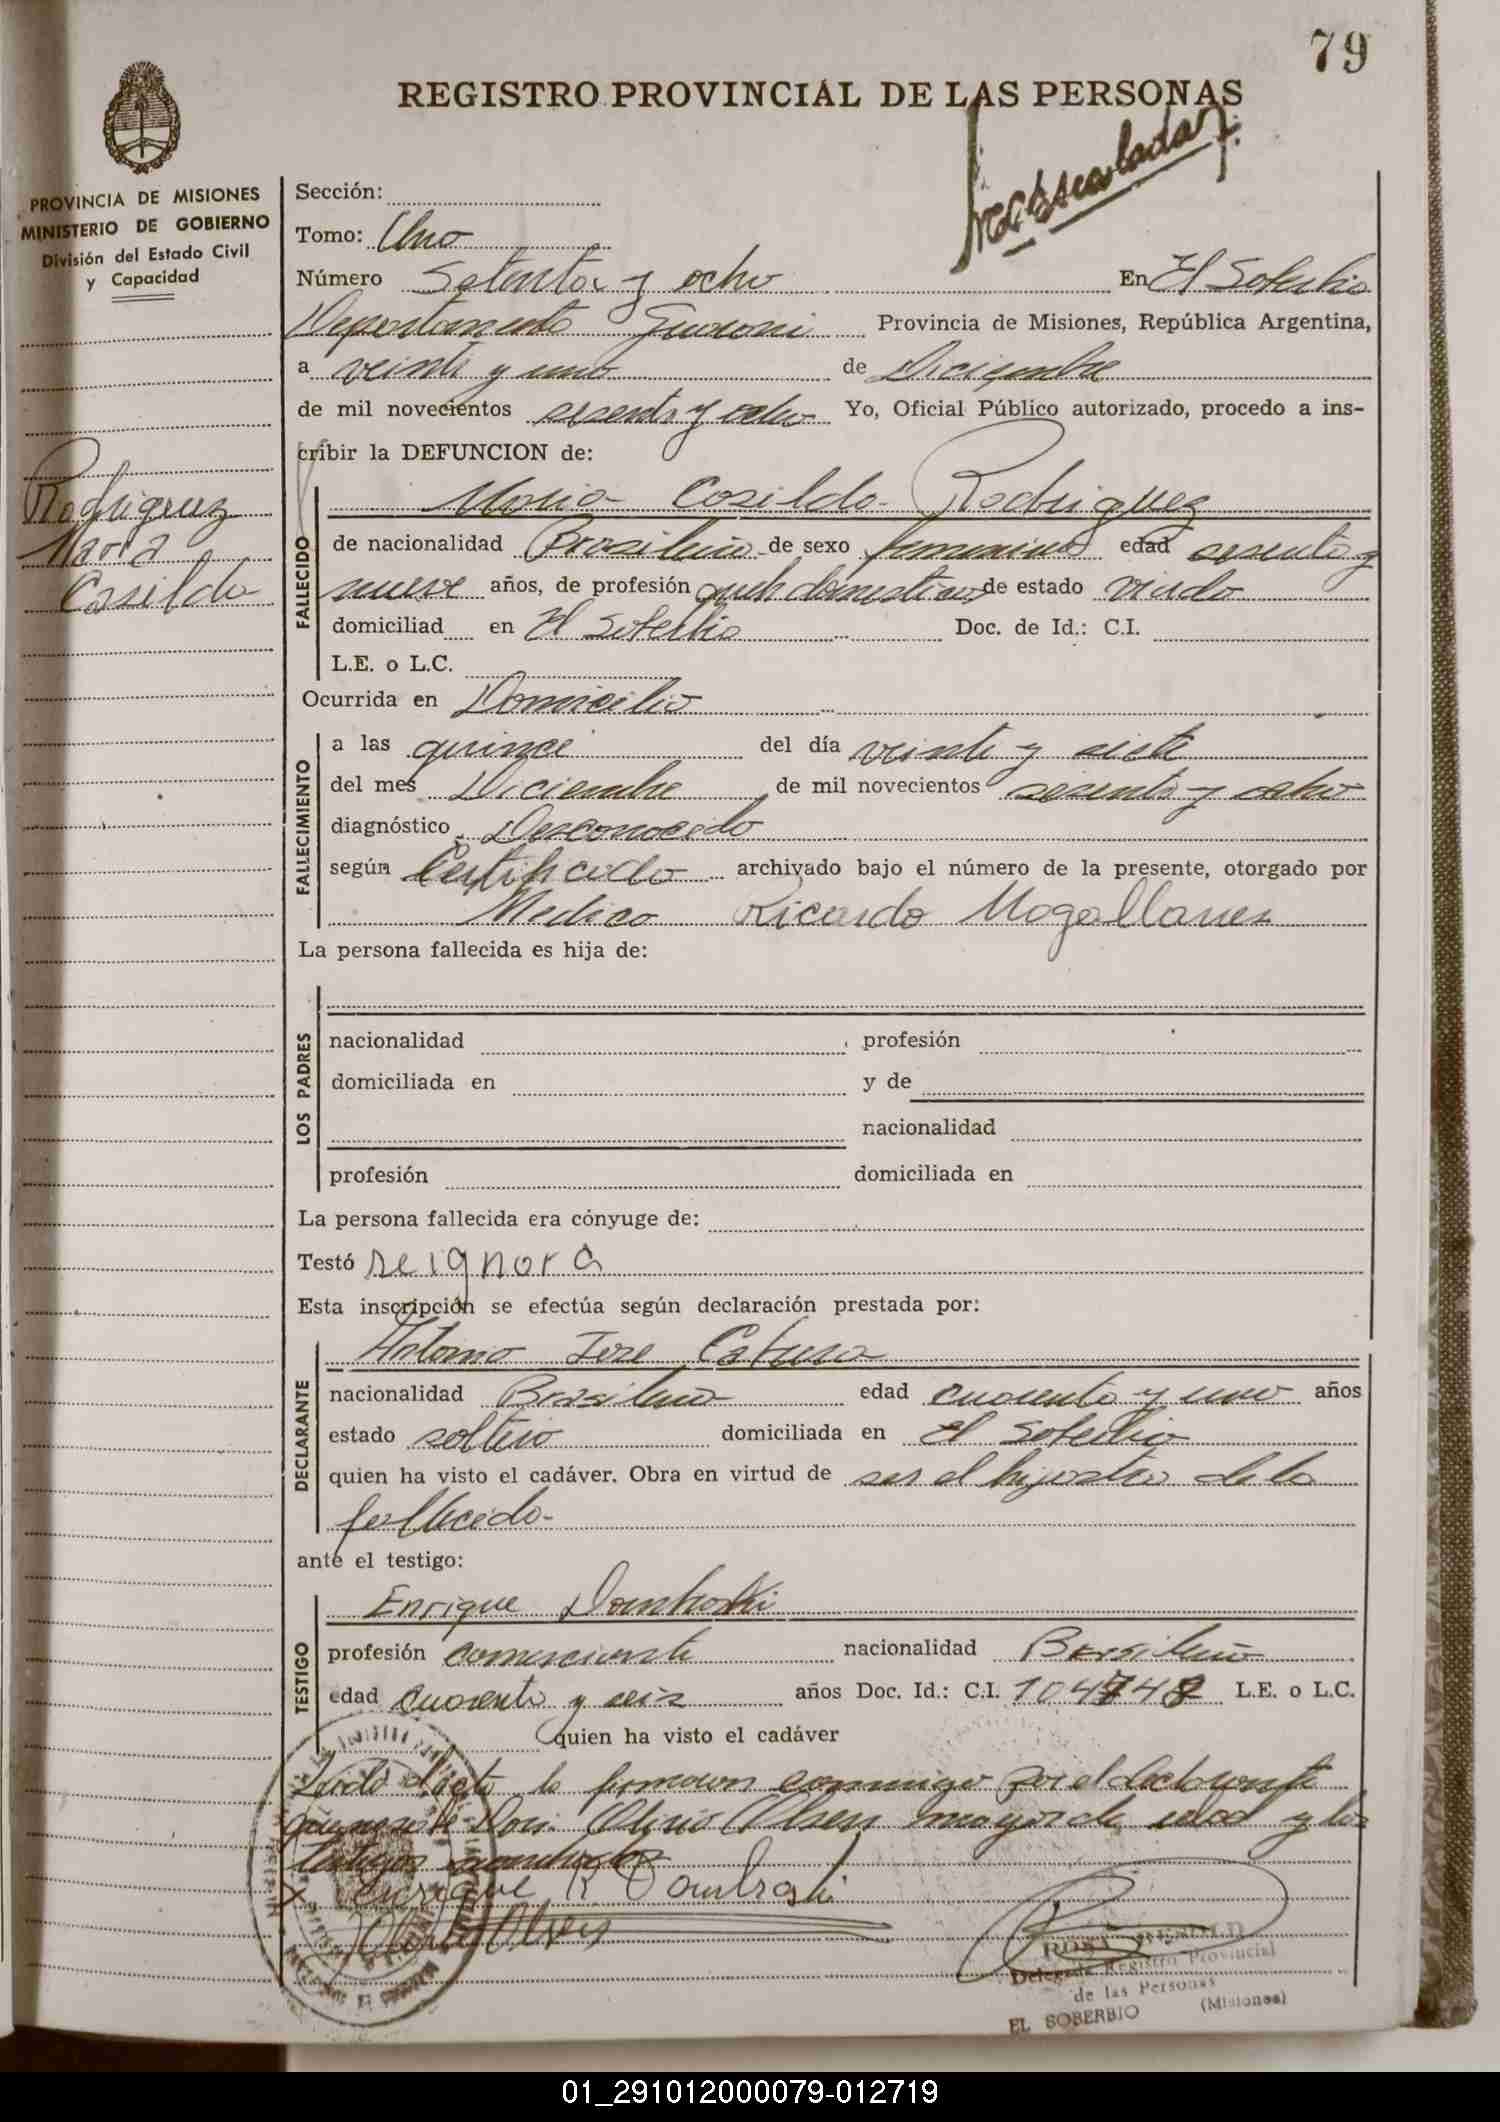 79
REGISTRO PROVINCIAL DE LAS PERSONAS
PROVINCIA DE MISIONES
MINISTERIO DE GOBIERNO
División del Estado Civil
y Capacidad
Sección:
Tomo: Uno
Número Setenta y ocho En El Soberbio
Departamento Guarani Provincia de Misiones, República Argentina,
a veinte y uno de Diciembre
de mil novecientos sesenta y ocho Yo, Oficial Público autorizado, procedo a ins-
cribir la DEFUNCION de:
Rodriguez
Maria
Casilda
FALLECIDO
Maria Casilda Rodriguez
de nacionalidad Brasileña de sexo femenino edad sesenta y
nueve años, de profesión domesticos de estado viuda
domiciliad en El Soberbio Doc. de Id.: C.I.
L.E. o L.C.
Ocurrida en Domicilio
FALLECIMIENTO
a las quince del día veinte y siete
del mes Diciembre de mil novecientos sesenta y ocho
diagnóstico Desconocido
según Certificado archivado bajo el número de la presente, otorgado por
Medico Ricardo Magallanes
La persona fallecida es hija de:
LOS PADRES
nacionalidad profesión
domiciliada en y de
nacionalidad
profesión domiciliada en
La persona fallecida era cónyuge de:
Testó se ignora
Esta inscripción se efectúa según declaración prestada por:
DECLARANTE
Antonio Jose
nacionalidad Brasileño edad cuarenta y uno años
estado soltero domiciliada en El Soberbio
quien ha visto el cadáver. Obra en virtud de ser el hijastro de la
fallecida.
ante el testigo:
TESTIGO
Enrique Dombroski
profesión comerciante nacionalidad Brasileño
edad cuarenta y seis años Doc. Id.: C.I. L.E. o L.C.
quien ha visto el cadáver
Leida el acta la firman conmigo por el declarante
Don mayor de edad y los
testigos
Enrique R Dombroski
Delegada Registro Provincial
de las Personas
EL SOBERBIO (Misiones)
01_291012000079-012719